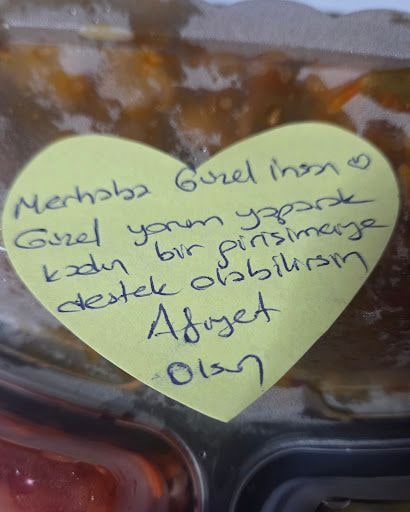 Merhaba Güzel insan ♡
Güzel yorum yaparak
kadın bir girişimciye
destek olabilirsin
Afiyet
Olsun